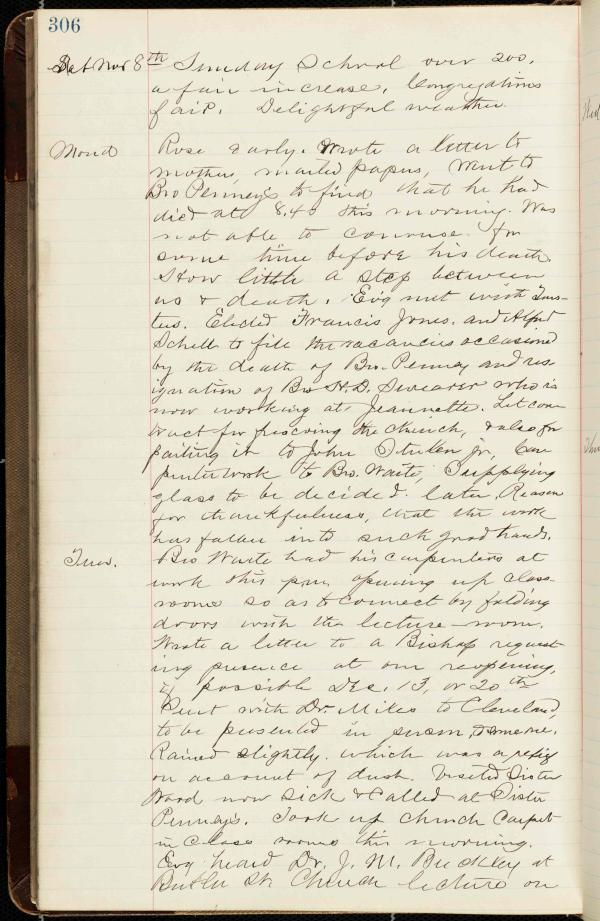 306
Sab Nov 8th Sunday School over 200,
a fair increase. Congregations
fair. Delightful weather.
Mond Rose early. Wrote a letter to
mother, mailed papers, went to
Bro Penney's to find that he had
died at 8.40 this morning. Was
not able to converse for
some time before his death.
How little a step between
us & death. Ev'g met with Trus-
tees. Elected Francis Jones. and Alfred
Schell to fill the vacancies occasioned
by the death of Bro. Penney and res-
ignation of Bro H. D. Swearer who is
now working at Jeannette. Let con-
tract for frescoing the church, & also for
painting it to John Stulen jr, Car-
penter work to Bro. Waite, Supplying
glass to be decided later. Reason
for thankfulness, that the work
has fallen into such good hands.
Tues. Bro Waite had his carpenters at
work this p.m. opening up class
rooms so as to connect by folding
doors with the lecture-room.
Wrote a letter to a Bishop request-
ing presence at our reopening,
if possible Dec. 13, or 20th
Sent with Dr. Miles to Cleveland,
to be presented in person, to some one.
Rained slightly. which was a
on account of dust. Visited Sister
Ward now sick & called at Sister
Penney's. Took up church carpet
in class rooms this morning.
Evg heard Dr. J. M. Buckley at
Butler St. Church lecture on